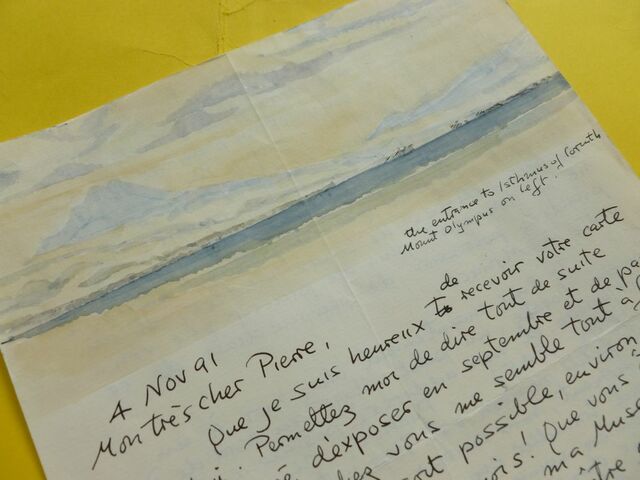 the entrance to Isthmus of Corinth
Mount Olympus on left.
4 Nov 91
Mon très cher Pierre,
Que je suis heureux de recevoir votre carte
Permettez moi de dire tout de suite
d'exposer en septembre et de
chez vous me semble tout à
possible, environ
! Que vous
ma